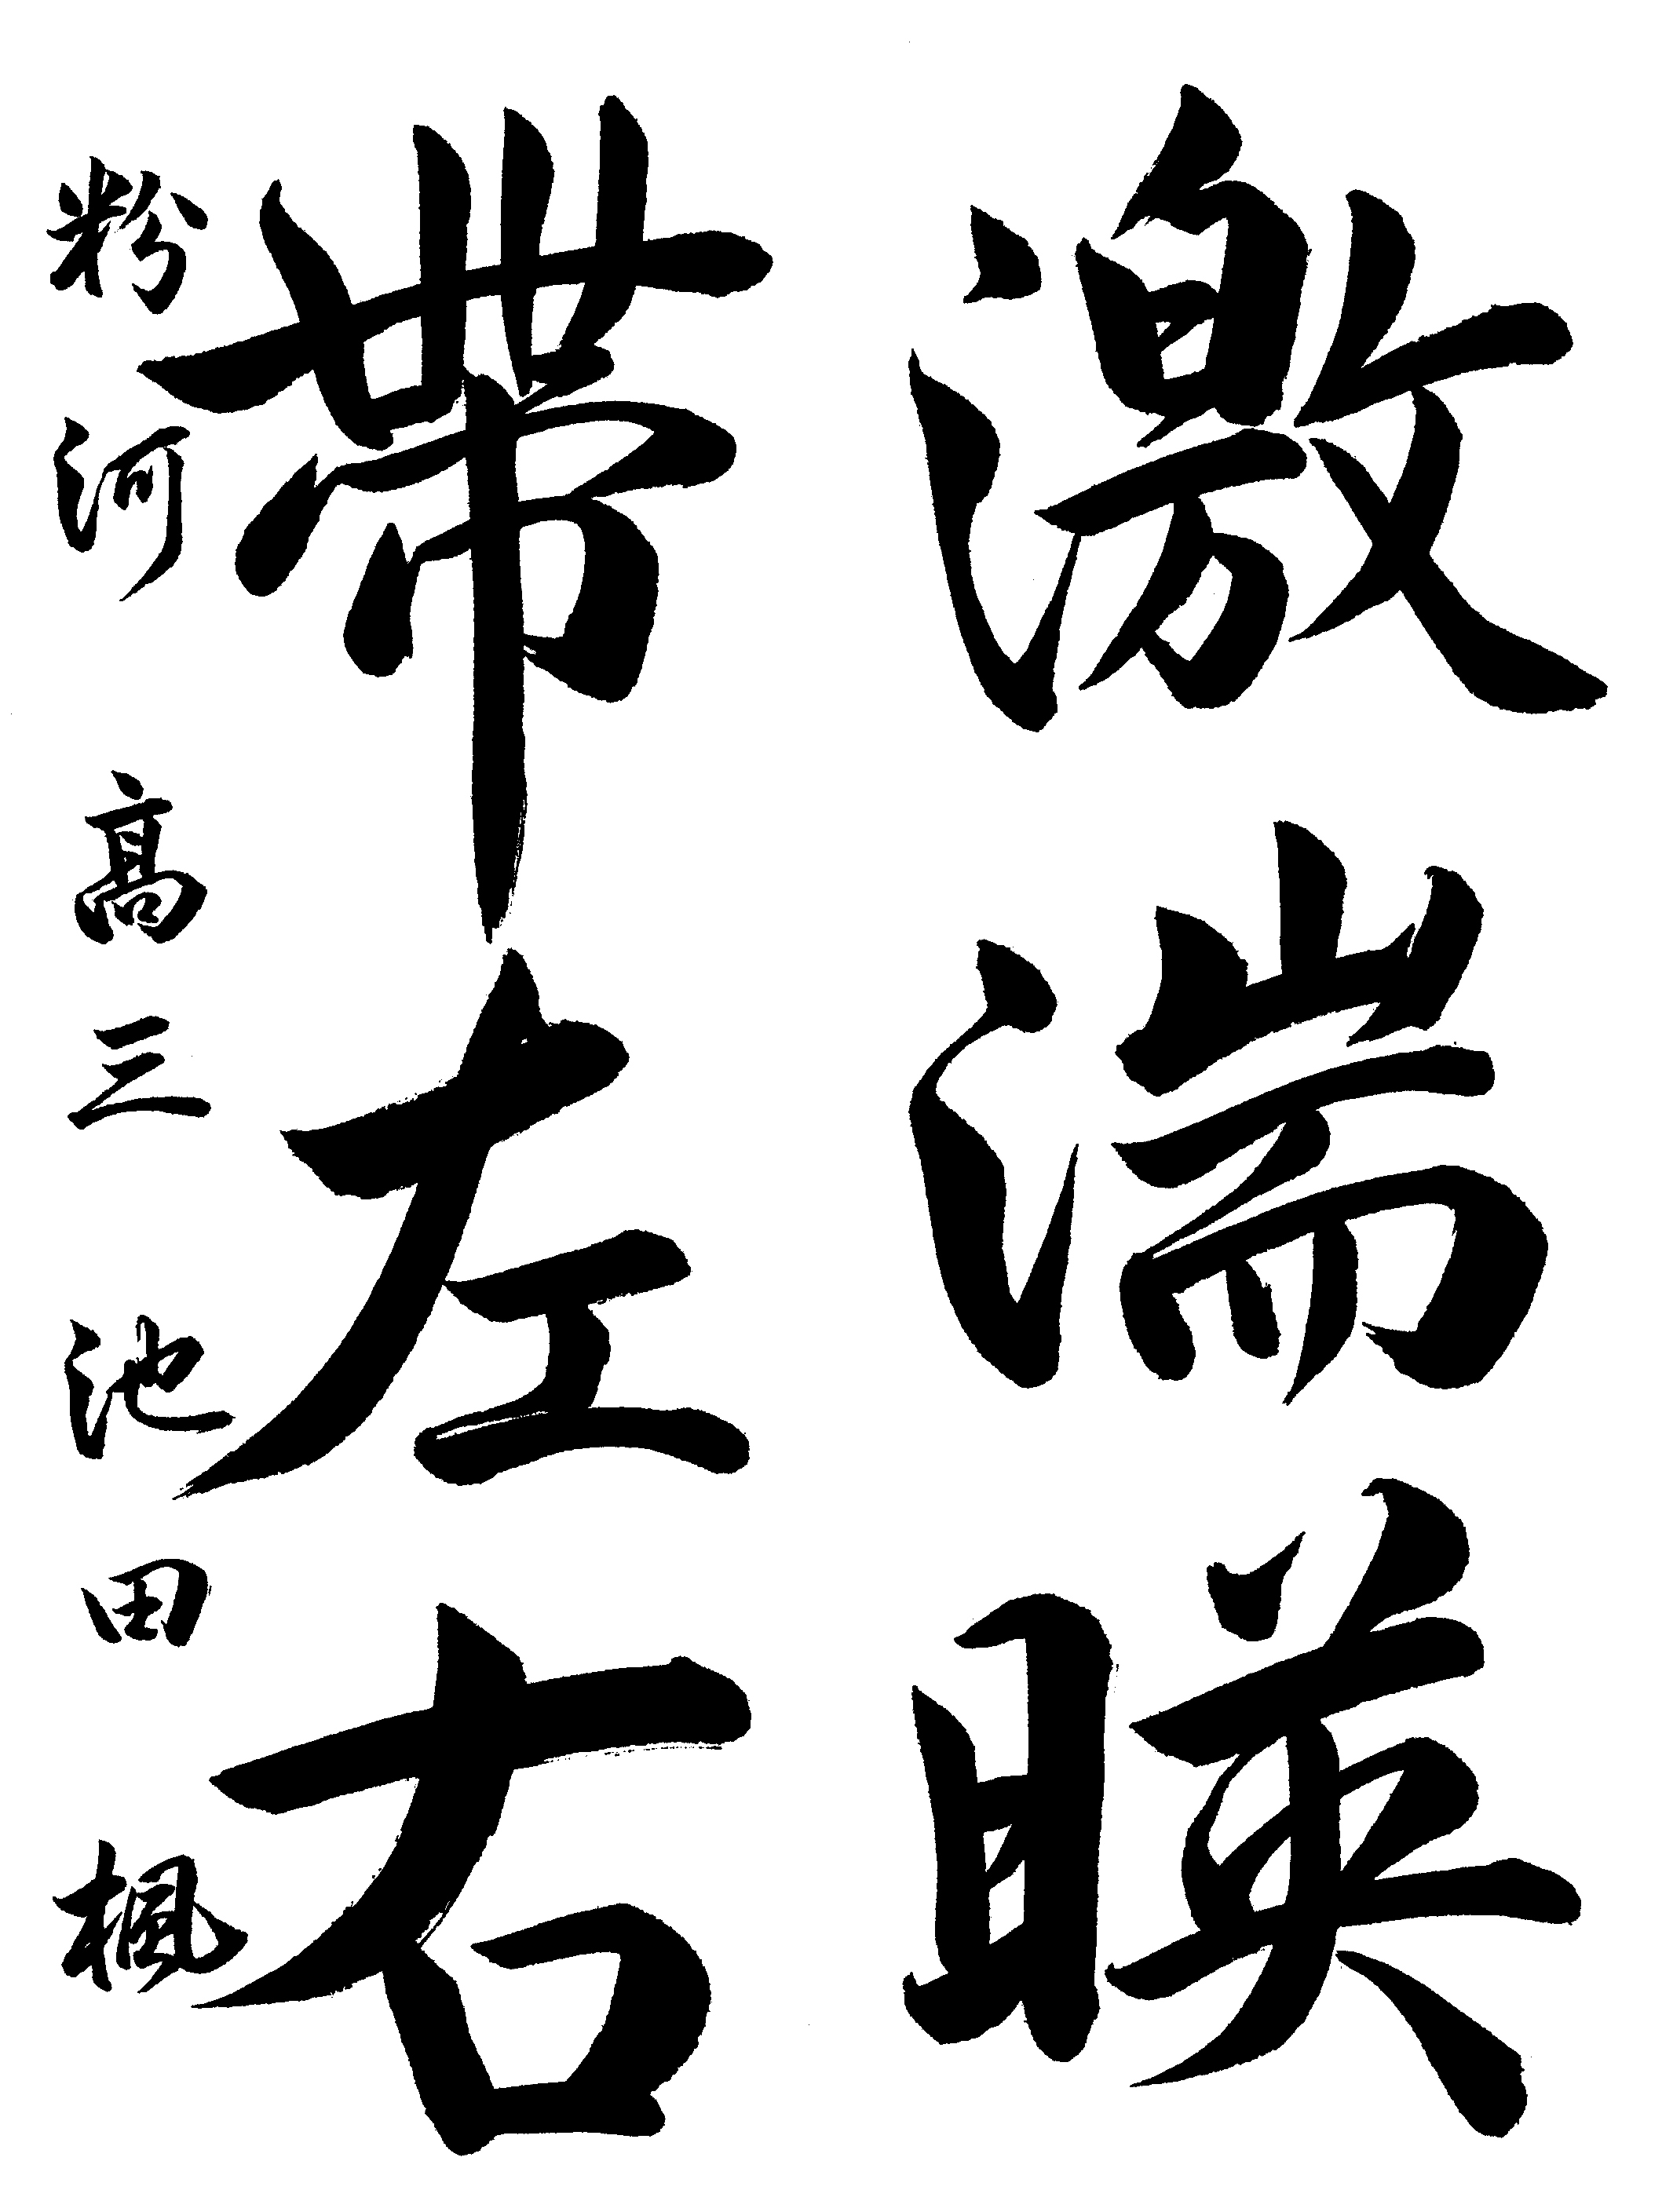 激湍暎
帶左右
粉河高三池田楓